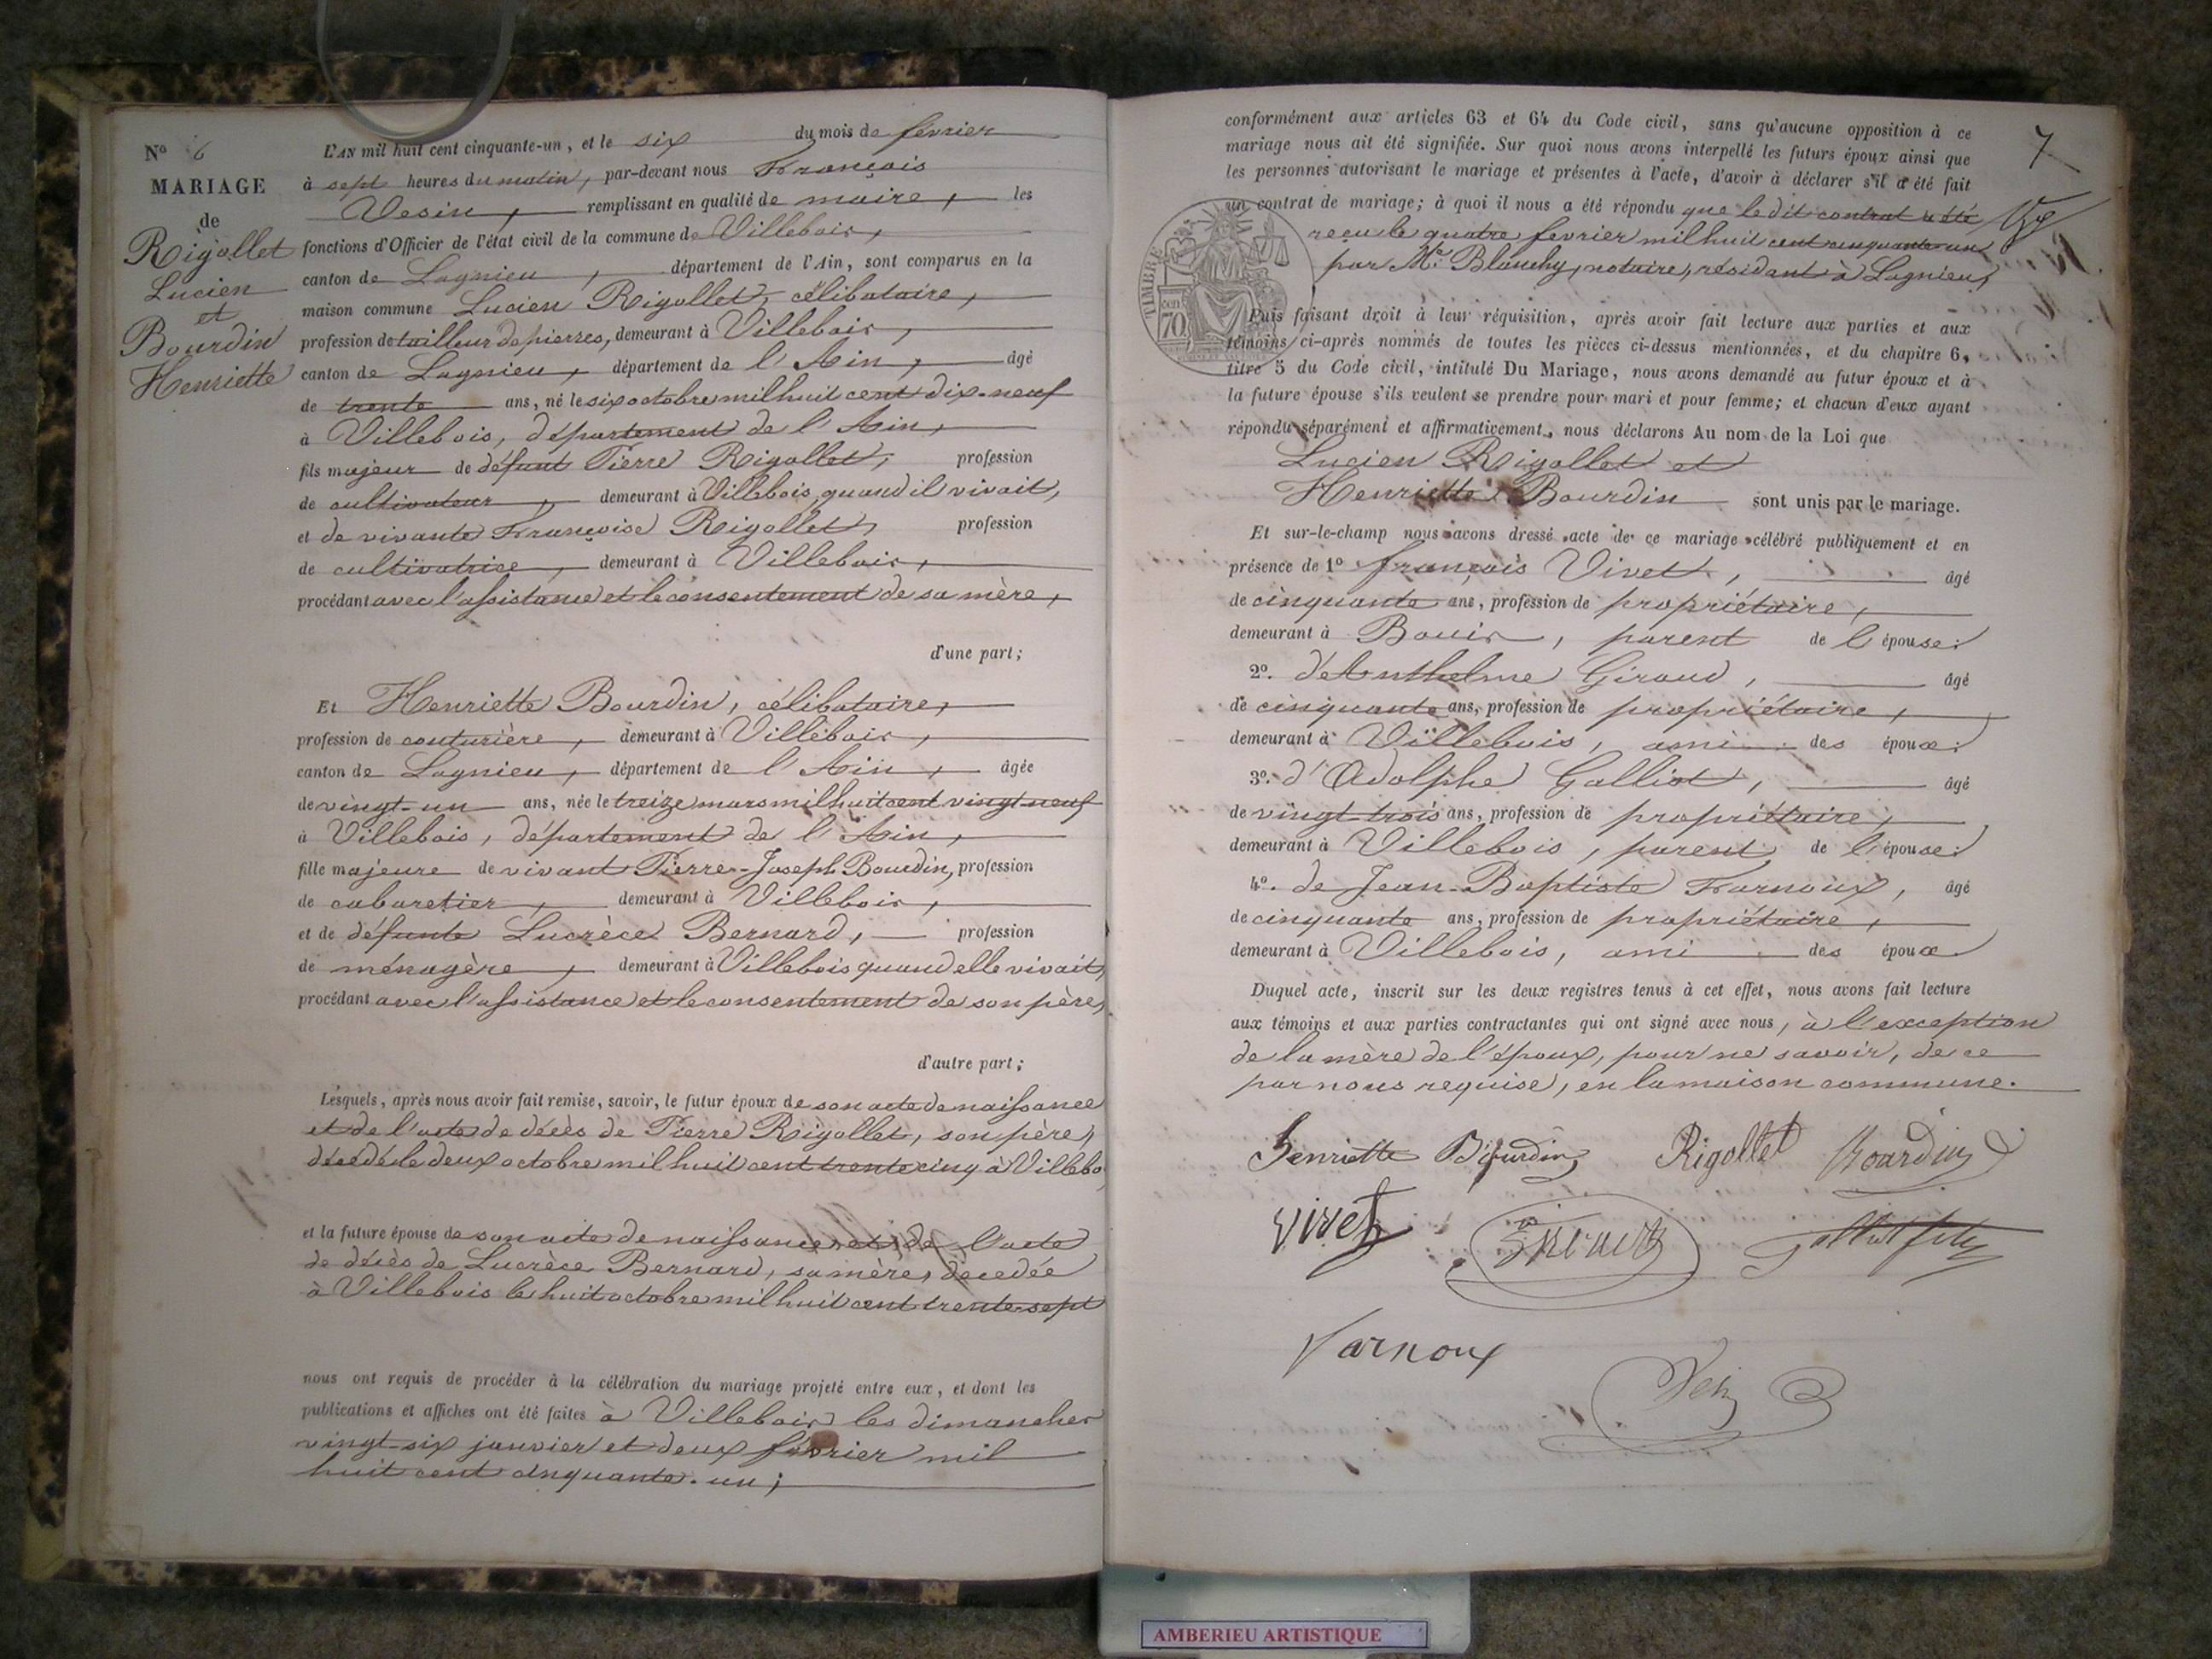 Nº 6
MARIAGE
de
Rigollet
Lucien
et
Bourdin
Henriette
L'AN mil huit cent cinquante-un, et le six du mois de février
à sept heures du matin, par-devant nous François
Vesin, remplissant en qualité de maire, les
fonctions d'Officier de l'état civil de la commune de Villebois,
canton de Lagnieu, département de l'Ain, sont comparus en la
maison commune Lucien Rigollet, célibataire,
profession de tailleur de pierres, demeurant à Villebois,
canton de Lagnieu, département de l'Ain, âgé
de trente ans, né le six octobre mil huit cent dix-neuf
à Villebois, département de l'Ain,
fils majeur de défunt Pierre Rigollet, profession
de cultivateur, demeurant à Villebois quand il vivait,
et de vivante Françoise Rigollet, profession
de cultivatrice, demeurant à Villebois,
procédant avec l'assistance et le consentement de sa mère,
d'une part;
Et Henriette Bourdin, célibataire,
profession de couturière, demeurant à Villebois,
canton de Lagnieu, département de l'Ain, âgée
de vingt-un ans, née le treize mars mil huit cent vingt-neuf
à Villebois, département de l'Ain,
fille majeure de vivant Pierre-Joseph Bourdin, profession
de cabaretier, demeurant à Villebois,
et de défunte Lucrèce Bernard, profession
de ménagère, demeurant à Villebois quand elle vivait,
procédant avec l'assistance et le consentement de son père,
d'autre part;
Lesquels, après nous avoir fait remise, savoir, le futur époux de son acte de naissance
et de l'acte de décès de Pierre Rigollet, son père,
décédé le deux octobre mil huit cent trente cinq à Villebo
et la future épouse de son acte de naissance et de l'acte
de décès de Lucrèce Bernard, sa mère, décédée
à Villebois le huit octobre mil huit cent trente-sept
nous ont requis de procéder à la célébration du mariage projeté entre eux, et dont les
publications et affiches ont été faites à Villebois les dimanches
vingt-six janvier et deux février mil
huit cent cinquante-un;
7
conformément aux articles 63 et 64 du Code civil, sans qu'aucune opposition à ce
mariage nous ait été signifiée. Sur quoi nous avons interpellé les futurs époux ainsi que
les personnes autorisant le mariage et présentes à l'acte, d'avoir à déclarer s'il a été fait
un contrat de mariage; à quoi il nous a été répondu que le dit contrat a été
reçu le quatre février mil huit cent cinquante-un
par Me. Blanchy, notaire, résidant à Lagnieu,
TIMBRE
70
Puis faisant droit à leur réquisition, après avoir fait lecture aux parties et aux
témoins ci-après nommés de toutes les pièces ci-dessus mentionnées, et du chapitre 6,
titre 5 du Code civil, intitulé Du Mariage, nous avons demandé au futur époux et à
la future épouse s'ils veulent se prendre pour mari et pour femme; et chacun d'eux ayant
répondu séparément et affirmativement, nous déclarons Au nom de la Loi que
Lucien Rigollet et
Henriette Bourdin sont unis par le mariage.
Et sur-le-champ nous avons dressé acte de ce mariage célébré publiquement et en
présence de 1º françois Vivet, âgé
de cinquante ans, profession de propriétaire,
demeurant à Bouis, parent de l'épouse;
2º. d'Anthelme Giraud, âgé
de cinquante ans, profession de propriétaire,
demeurant à Villebois, ami des époux;
3º. d'Adolphe Galliot, âgé
de vingt-trois ans, profession de propriétaire,
demeurant à Villebois, parent de l'épouse;
4º. de Jean-Baptiste Farnoux, âgé
de cinquante ans, profession de propriétaire,
demeurant à Villebois, ami des époux
Duquel acte, inscrit sur les deux registres tenus à cet effet, nous avons fait lecture
aux témoins et aux parties contractantes qui ont signé avec nous, à l'exception
de la mère de l'époux, pour ne savoir, de ce
par nous requise, en la maison commune.
henriette Bourdin Rigollet Bourdin
Vivet galliot fils
Varnoux
AMBERIEU ARTISTIQUE